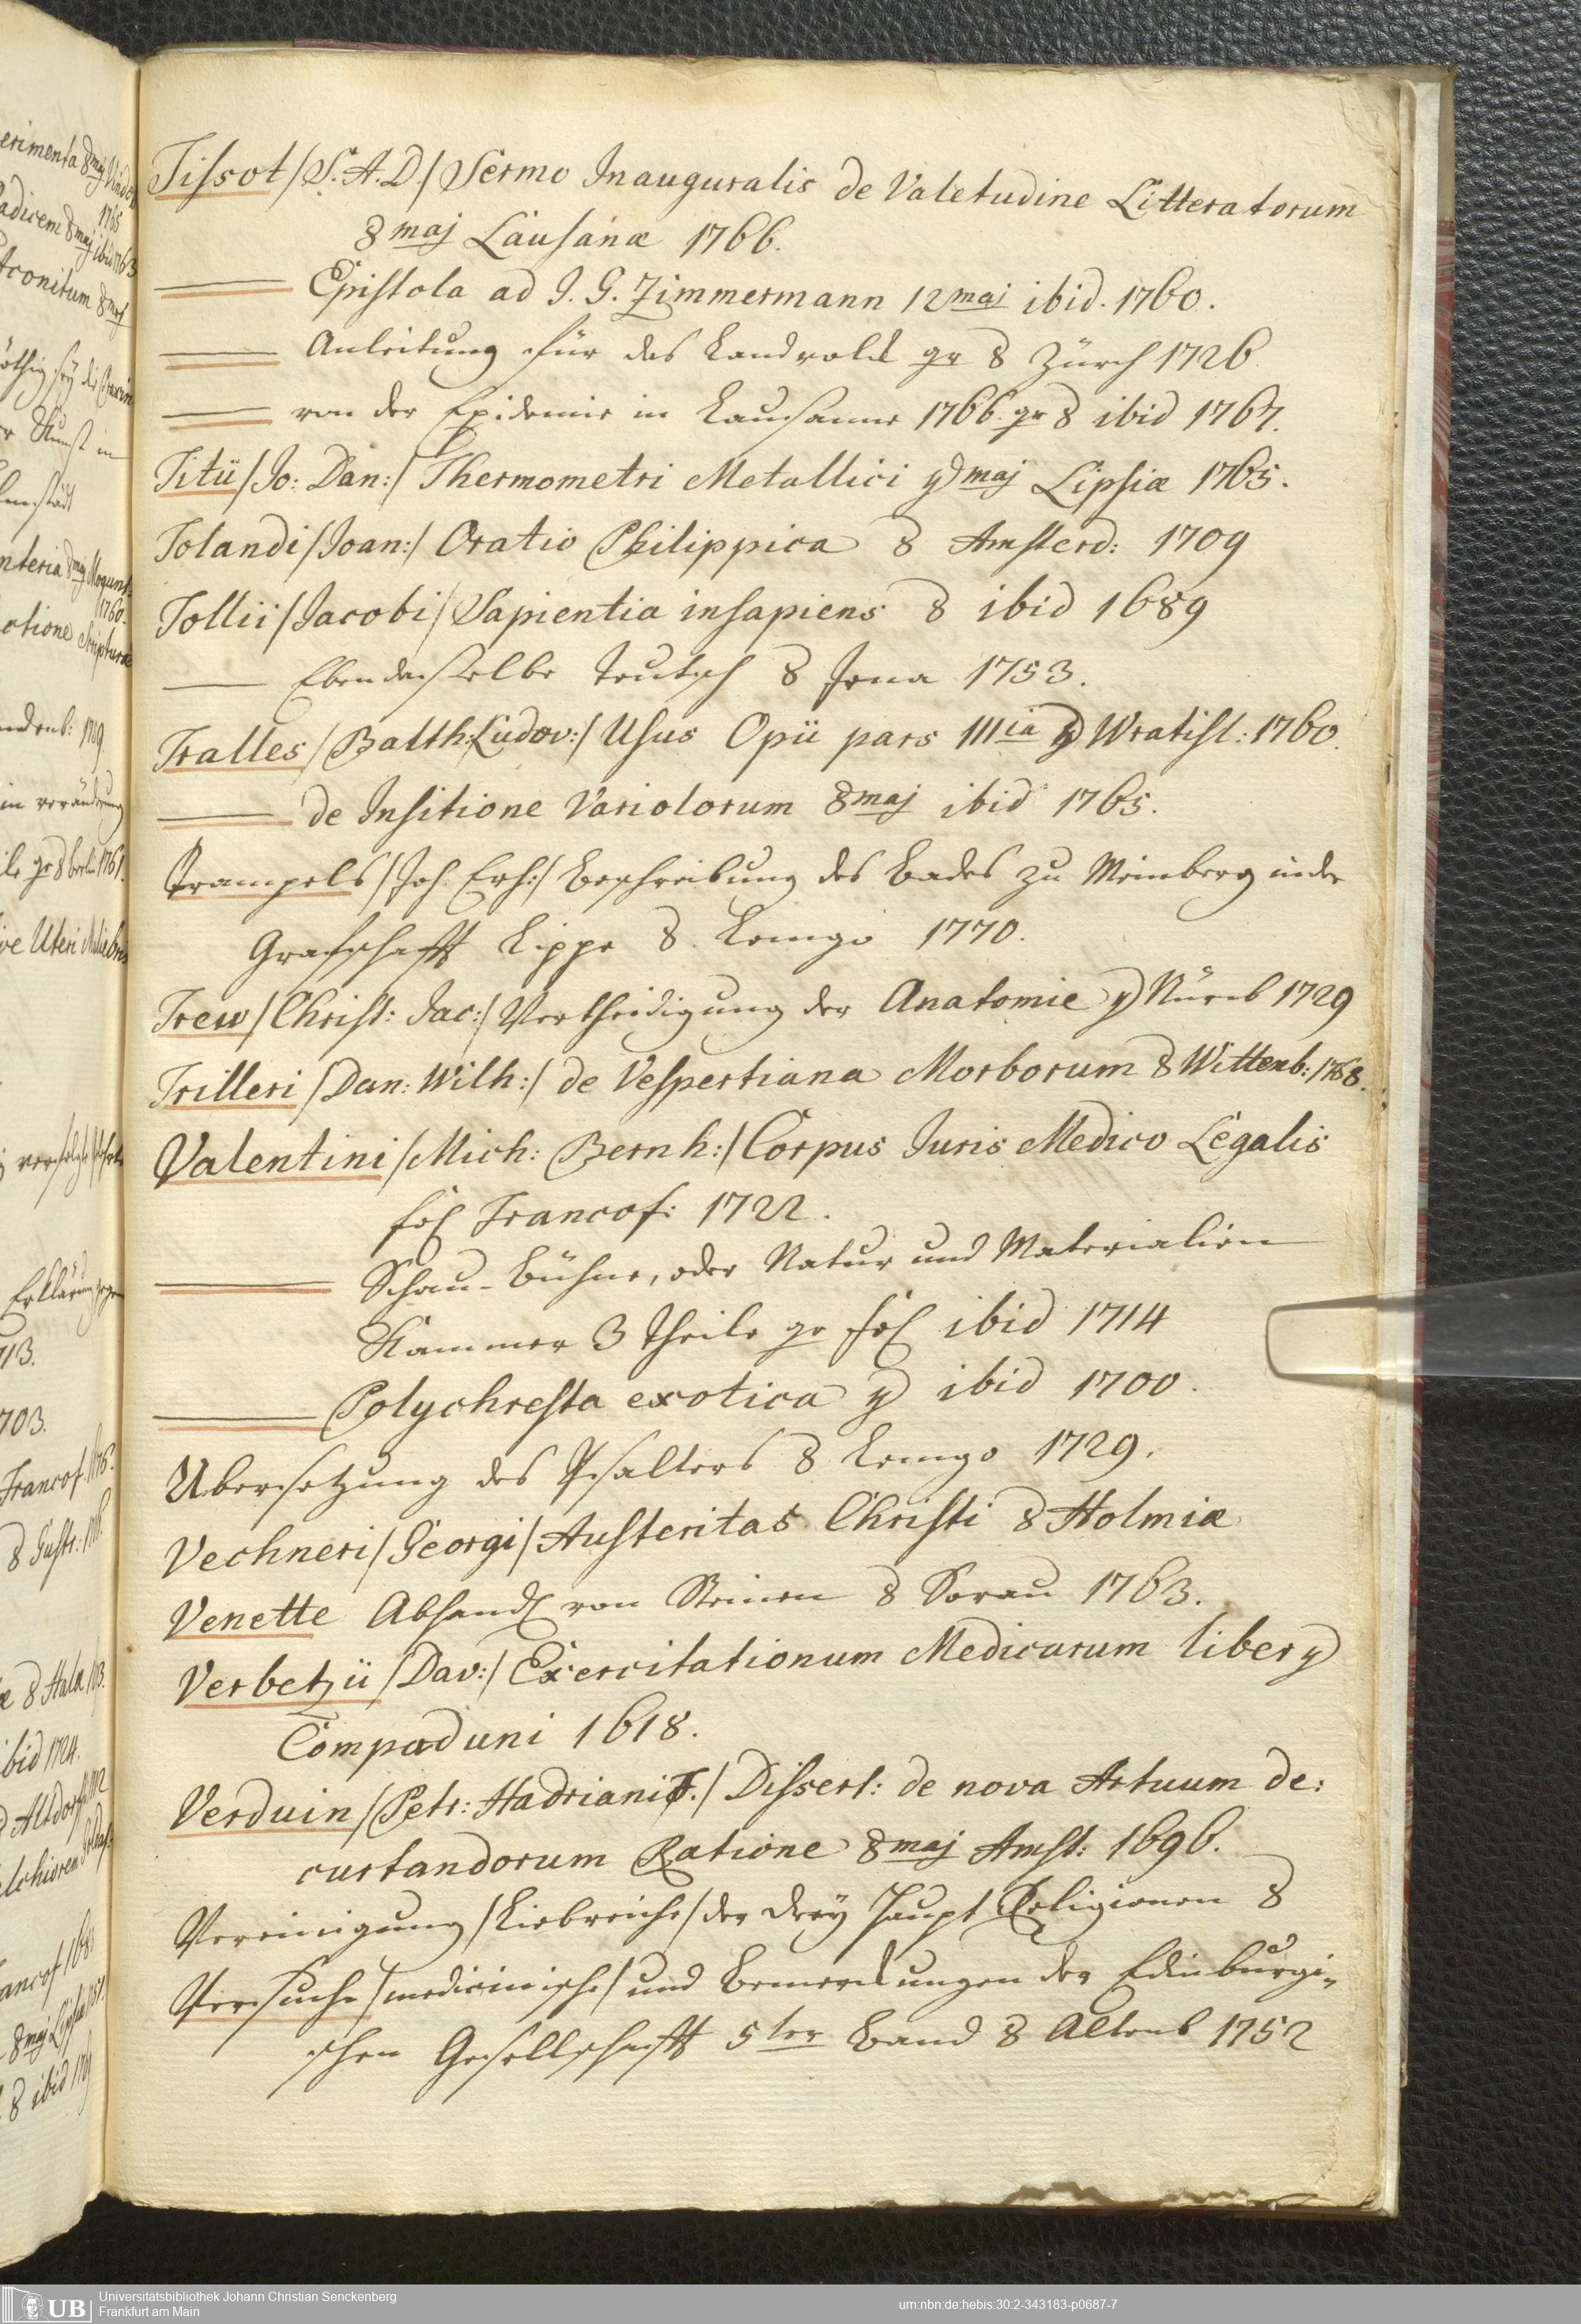 Tissot /S. A. D./ Sermo Inauguralis de Valetudine Litteratorum
8 maj Lausanæ 1766.
Epistola ad J. G. Zimmermann 12 maj ibid. 1760.
Anleitung für das Landvolck gr 8 Zürch 1726
von der Epidemie in Lausanne 1766 gr 8 ibid 1767.
Titii /Jo: Dan:/ Thermometri Metallici 4 maj Lipsiæ 1765.
Tolandi /Joan:/ Oratio Philippica 8 Amsterd: 1709
Tollii /Jacobi/ Sapientia insapiens 8 ibid 1689
Ebendasselbe Teutsch 8 Jena 1753.
Tralles /Balth: Ludov:/ Usus Opii pars IIIia 4 Wratisl: 1760.
de Insitione Variolorum 8maj ibid 1765.
Trampels /Joh. Erh:/ Beschreibung des Bades zu Meinberg in der
Grafschafft Lippe 8. Lemgo 1770.
Trew /Christ: Jac:/ Vertheidigung der Anatomie 4 Nürnb 1729
Trilleri /Dan: Wilh:/ de Vespertiana Morborum 8 Wittenb: 1768.
Valentini /Mich: Bernh:/ Corpus Juris Medico Legalis
fol Francof: 1722.
Schau-Bühne, oder Natur und Materialien
Kammer 3 Theile gr fol ibid 1714
Polychresta exotica 4 ibid 1700.
Ubersetzung des Psalters 8 Lemgo 1729.
Vechneri /Georgi/ Austeritas Christi 8 Holmiæ
Venette Abhandl von Steinen 8 Sorau 1763.
Verbetzii /Dav:/ Exercitationum Medicarum liber 4
Compaduni 1618.
Verduin /Petr: Hadriani F./ Dissert: de nova Artuum de:
curtandorum Ratione 8maj Amst: 1696.
Vereinigung /Liebreiche/ der drey Haupt Religionen 8
Versuche /medicinische/ und Bemerckungen der Edinburgi-
schen Gesellschafft 5ter Band 8 Altenb 1752
UB Universitätsbibliothek Johann Christian Senckenberg
Frankfurt am Main
urn:nbn:de:hebis:30:2-343183-p0687-7